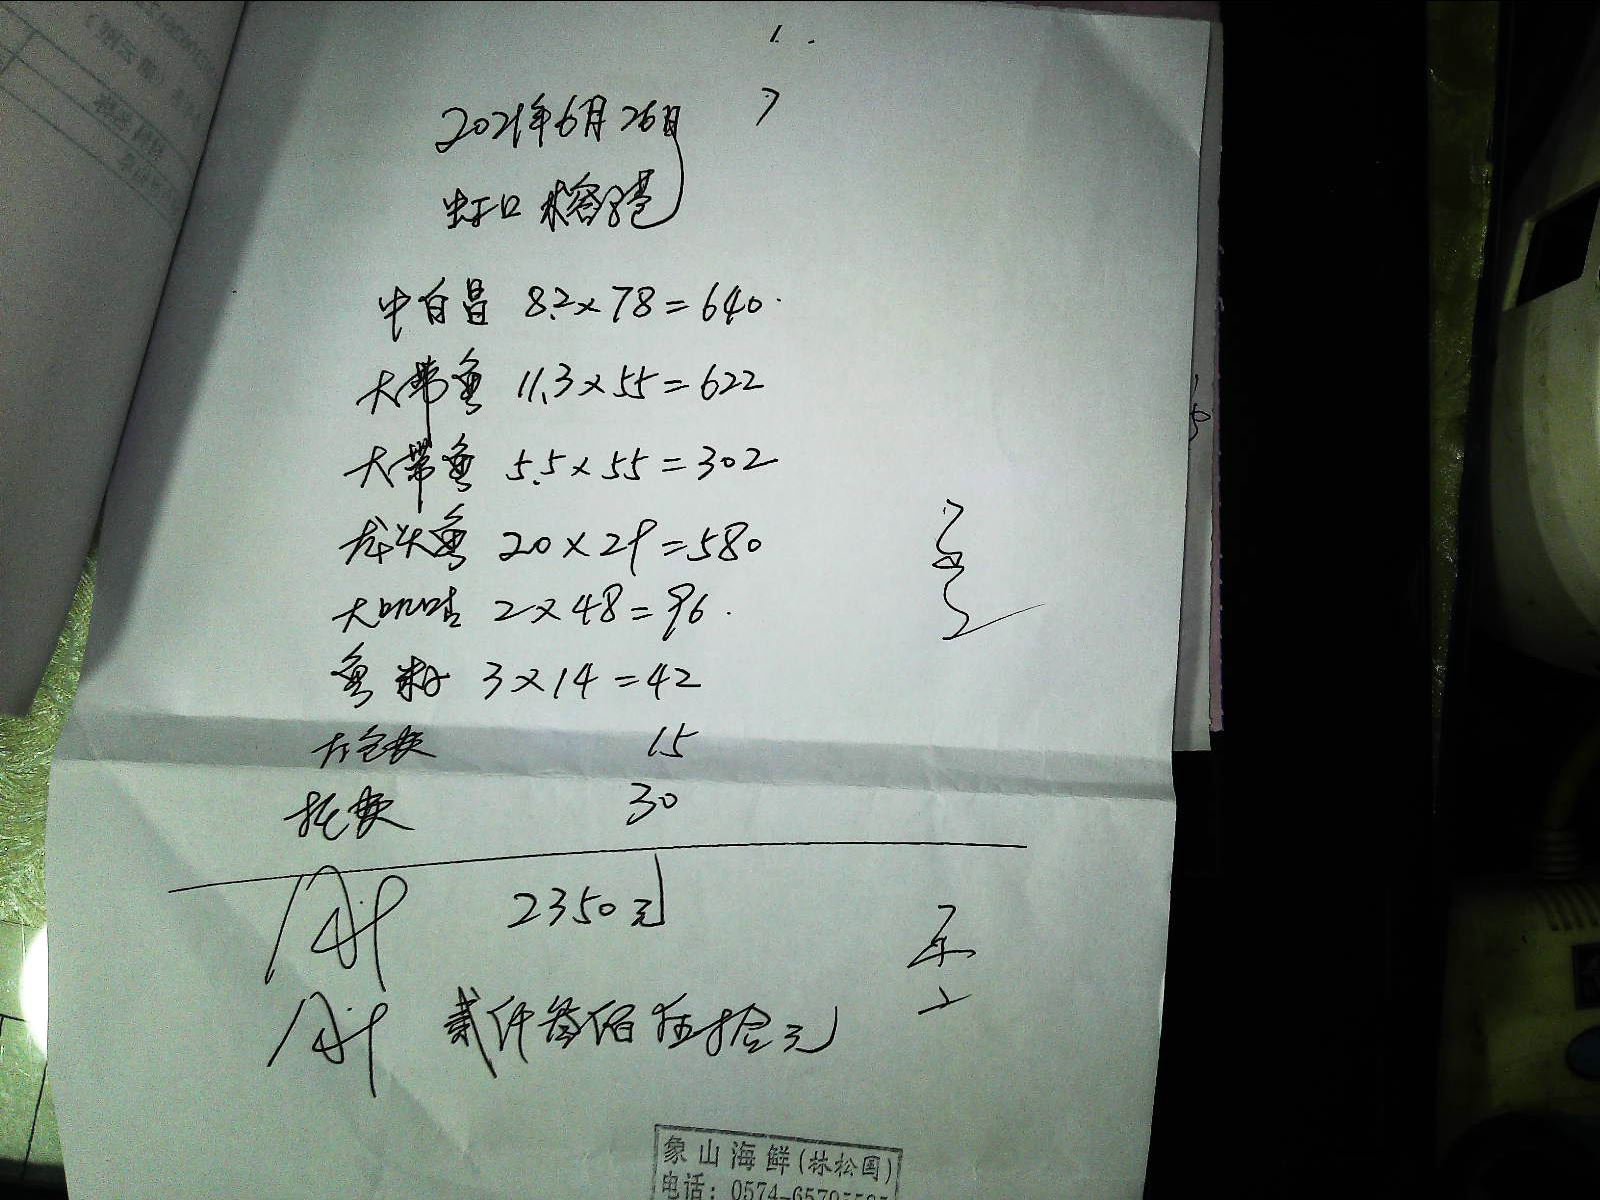 2021年6月26日
虹口 榕港
中白昌 8.2×78=640
大带鱼 11.3×55=622
大带鱼 5.5×55=302
龙头鱼 20×29=580
大 2×48=96
鱼 3×14=42
15
30
2350元
贰仟叁佰伍拾元
象山海鲜(林松国)
电话: 0574-6579